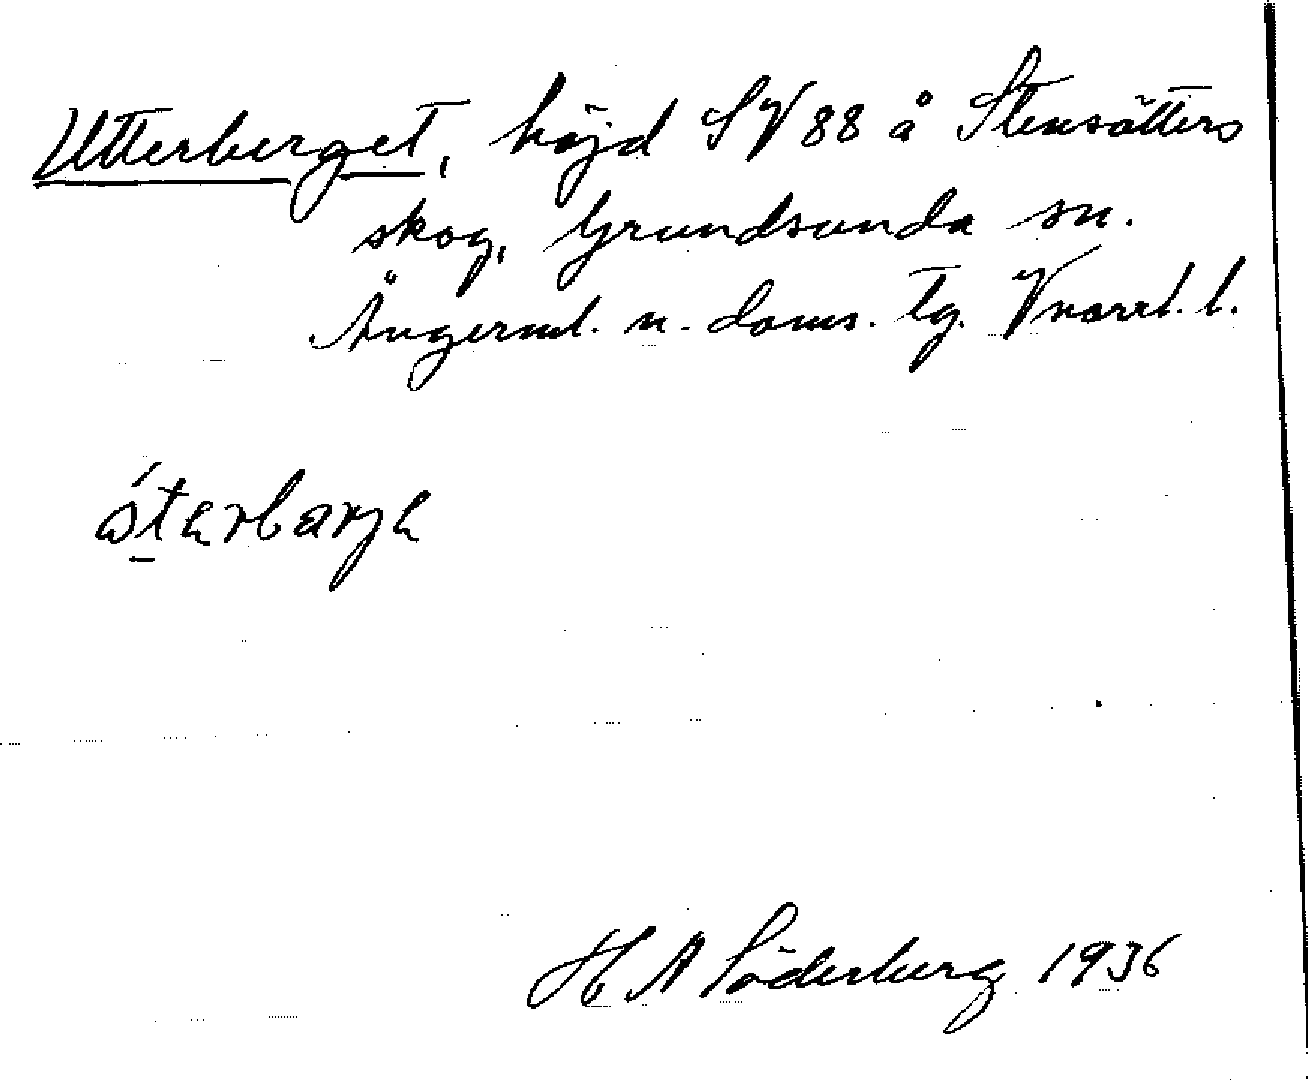 Utterberget, höjd SV 88 å Stensätters
skog, Grundsunda sn.
Ångerml. n. doms. tg. Vnorrl. l.
H A Söderberg 1936